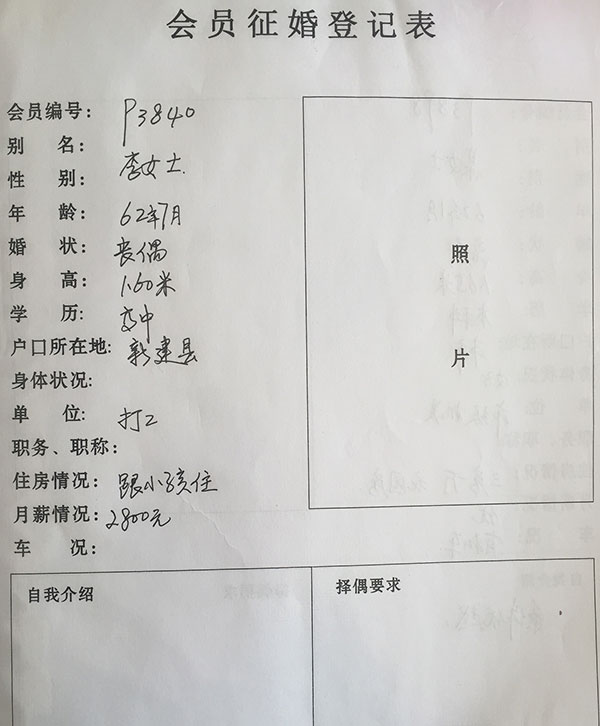 会员征婚登记表
会员编号: P3840
别 名:
性 别: 李女士.
年 龄: 62年7月
婚 状: 丧偶
身 高: 1.60米
学 历: 高中
户口所在地: 新建县
身体状况:
单 位: 打工
职务、职称:
住房情况: 跟小孩住
月薪情况: 2800元
车 况:
照
片
自我介绍
择偶要求